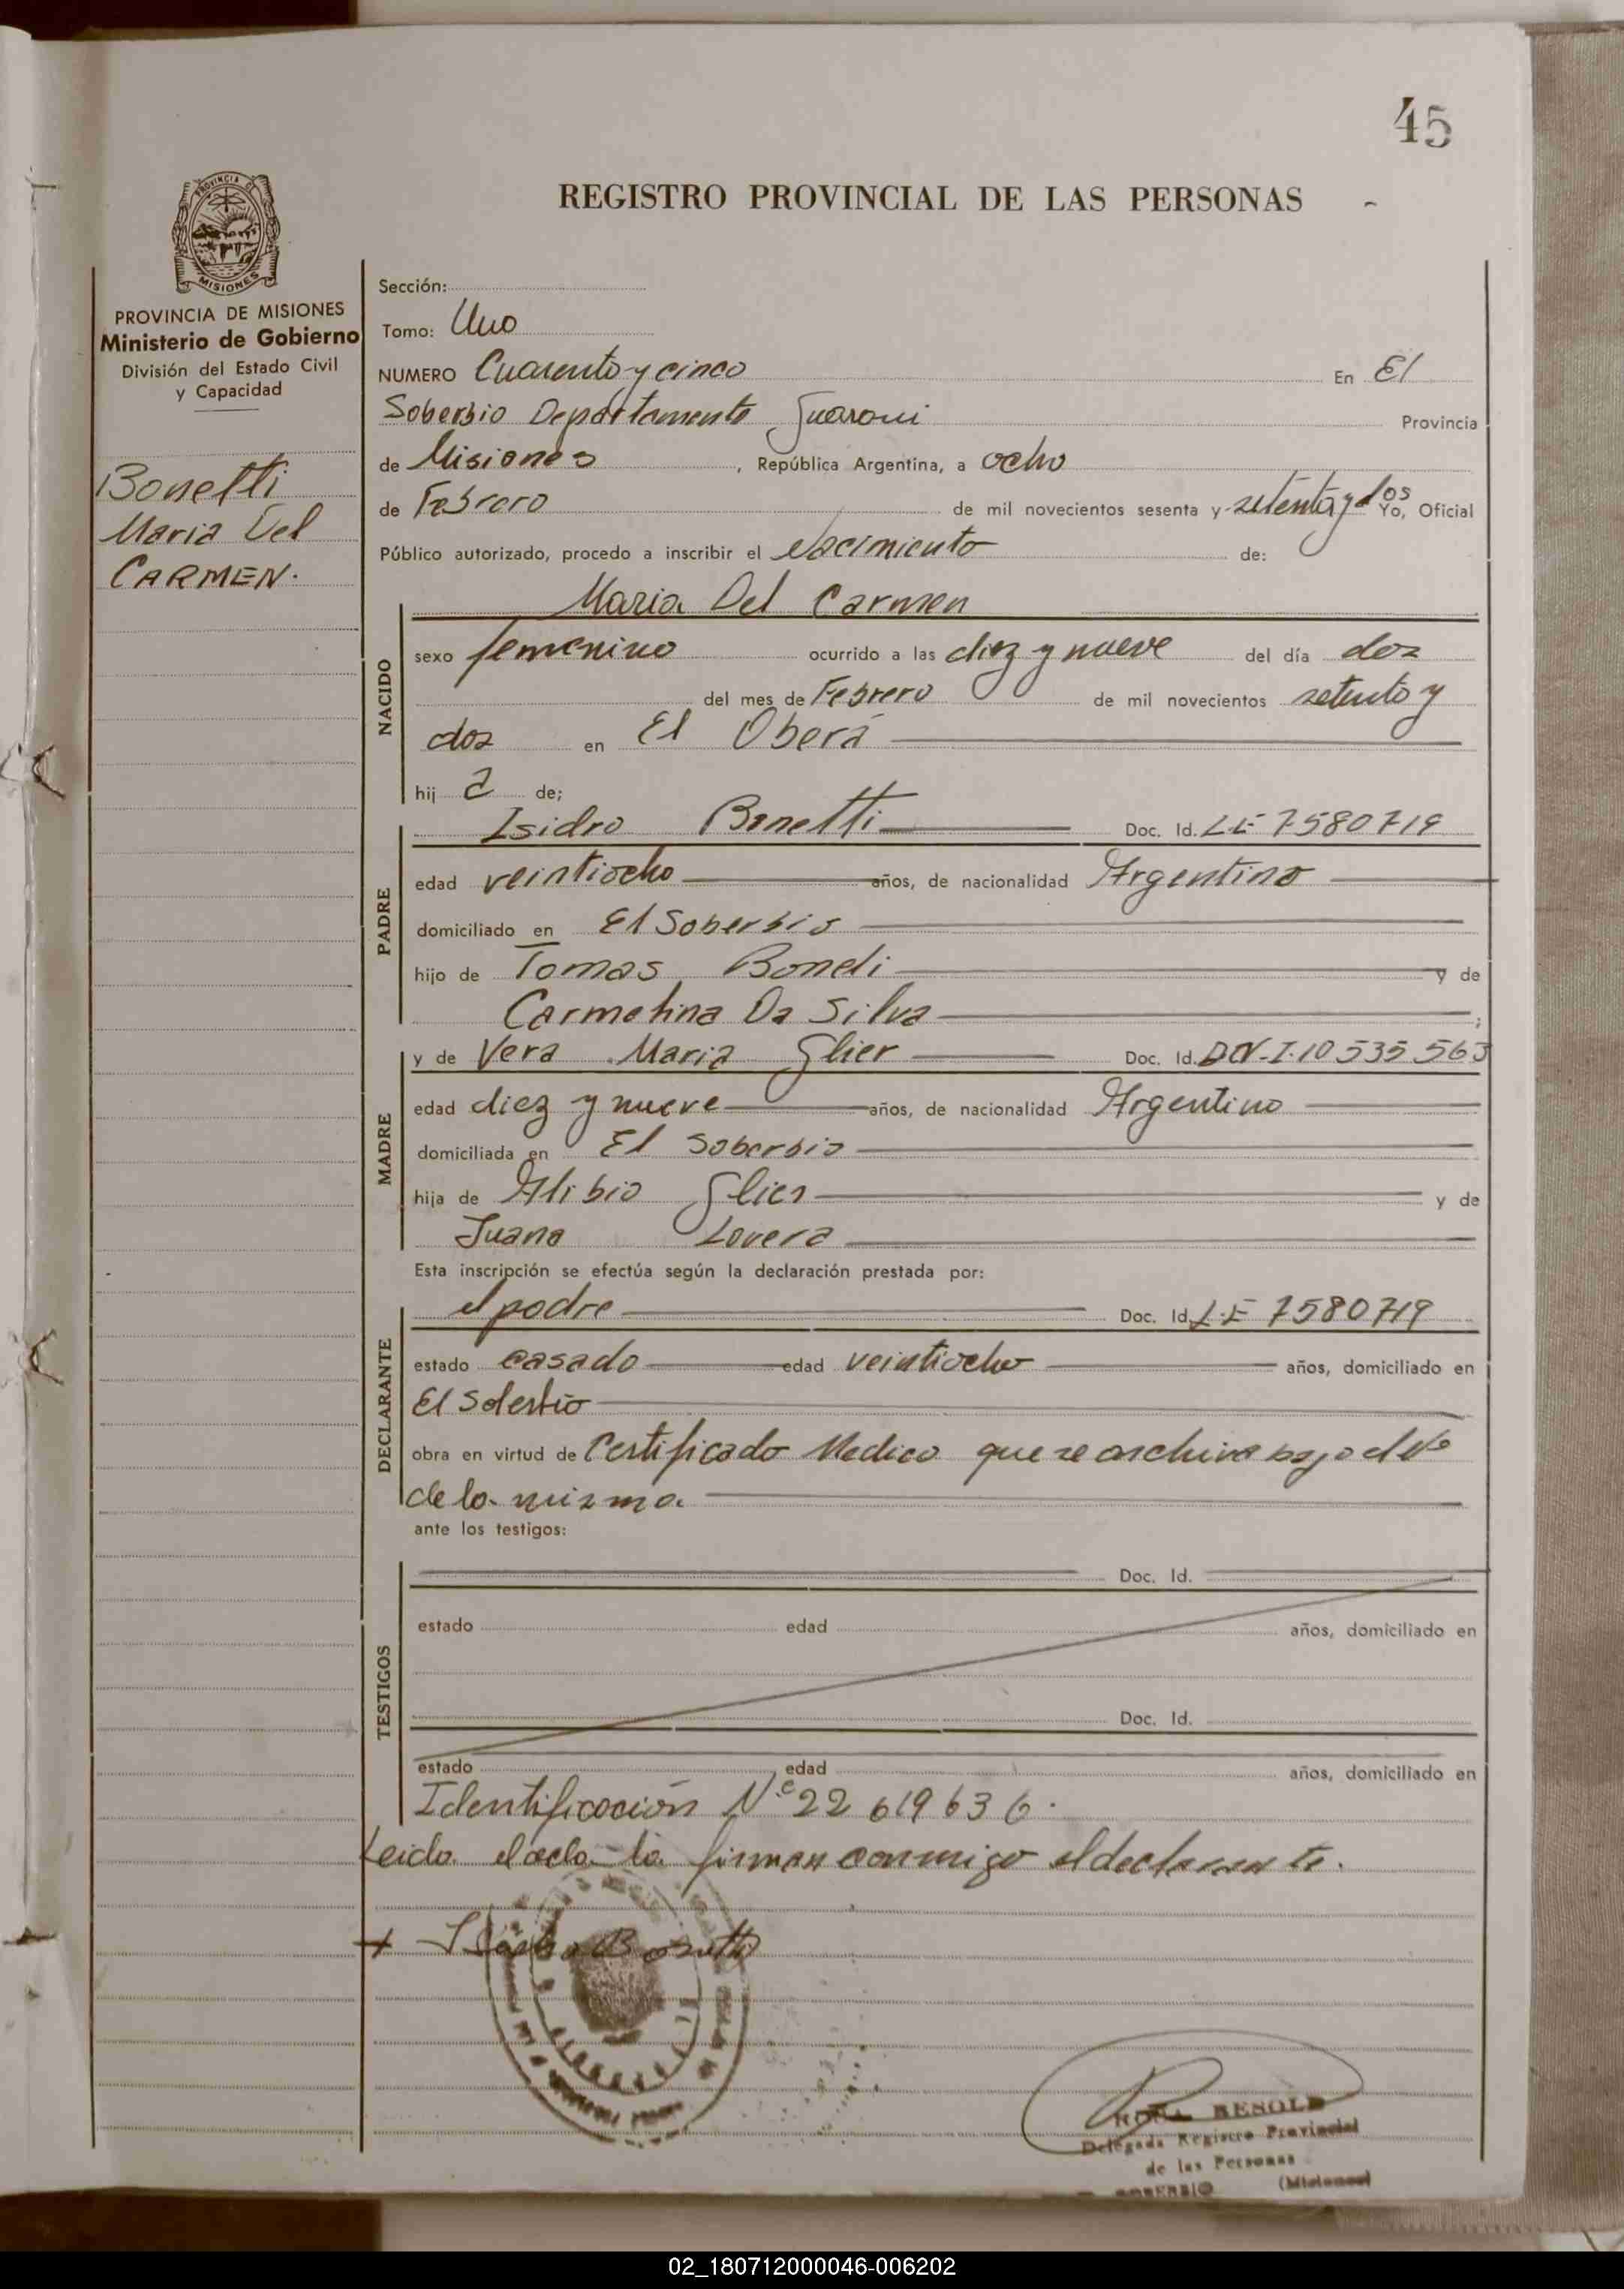 45
REGISTRO PROVINCIAL DE LAS PERSONAS
PROVINCIA DE MISIONES
Ministerio de Gobierno
División del Estado Civil
y Capacidad
Bonetti
Maria Del
CARMEN.
Sección:
Tomo: Uno
NUMERO Cuarenta y cinco En El
Soberbio Departamento Guarani Provincia
de Misiones, República Argentina, a ocho
de Febrero de mil novecientos sesenta y setenta y dos Yo, Oficial
Público autorizado, procedo a inscribir el Nacimiento de:
NACIDO
Maria Del Carmen
sexo femenino ocurrido a las diez y nueve del día dos
del mes de Febrero de mil novecientos setenta y
dos en El Oberá
hij a de;
PADRE
Isidro Bonetti Doc. Id. LE 7580719
edad veintiocho años, de nacionalidad Argentino
domiciliado en El Soberbio
hijo de Tomas Boneli y de
Carmelina Da Silva ;
MADRE
y de Vera Maria Glier Doc. Id. DN.I.10 535 563
edad diez y nueve años, de nacionalidad Argentino
domiciliada en El Soberbio
hija de Alibio Glier y de
Juana Lovera
Esta inscripción se efectúa según la declaración prestada por:
DECLARANTE
el padre Doc. Id. L.E 7580719
estado casado edad veintiocho años, domiciliado en
El Soberbio
obra en virtud de Certificado Medico que se archiva bajo el Nº
de la misma.
ante los testigos:
TESTIGOS
Doc. Id.
estado edad años, domiciliado en
Doc. Id.
estado edad años, domiciliado en
Identificación Nº 22 619 636.
Leida el acta la firman conmigo el declarante.
+ Isidro Bonetti
ROSA RESOLE
Delegada Registro Provincial
de las Personas
SOBERBIO (Misiones)
02_180712000046-006202